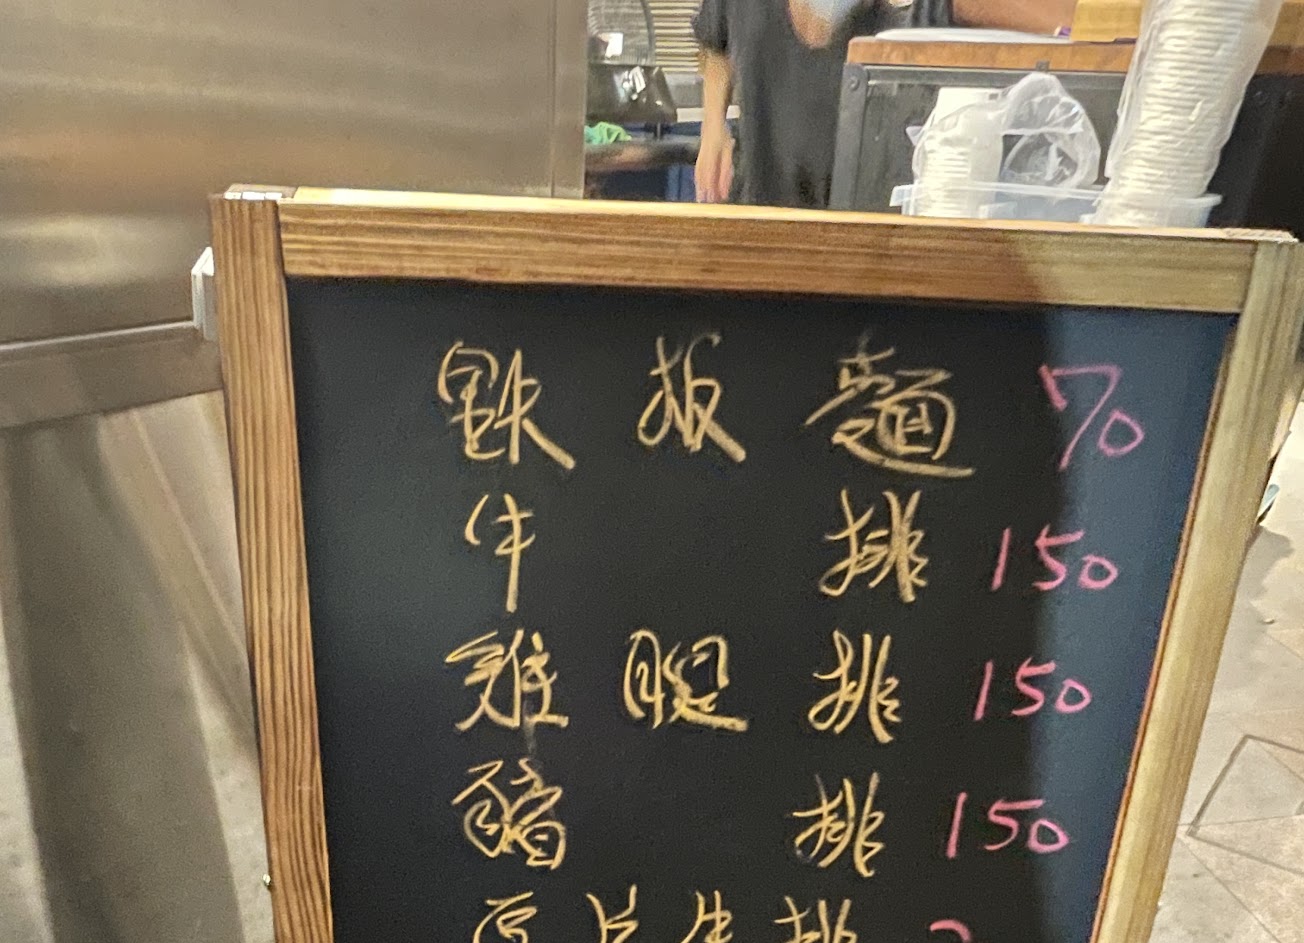 鉄板麵 70
牛排 150
雞腿排 150
豬排 150
牛排